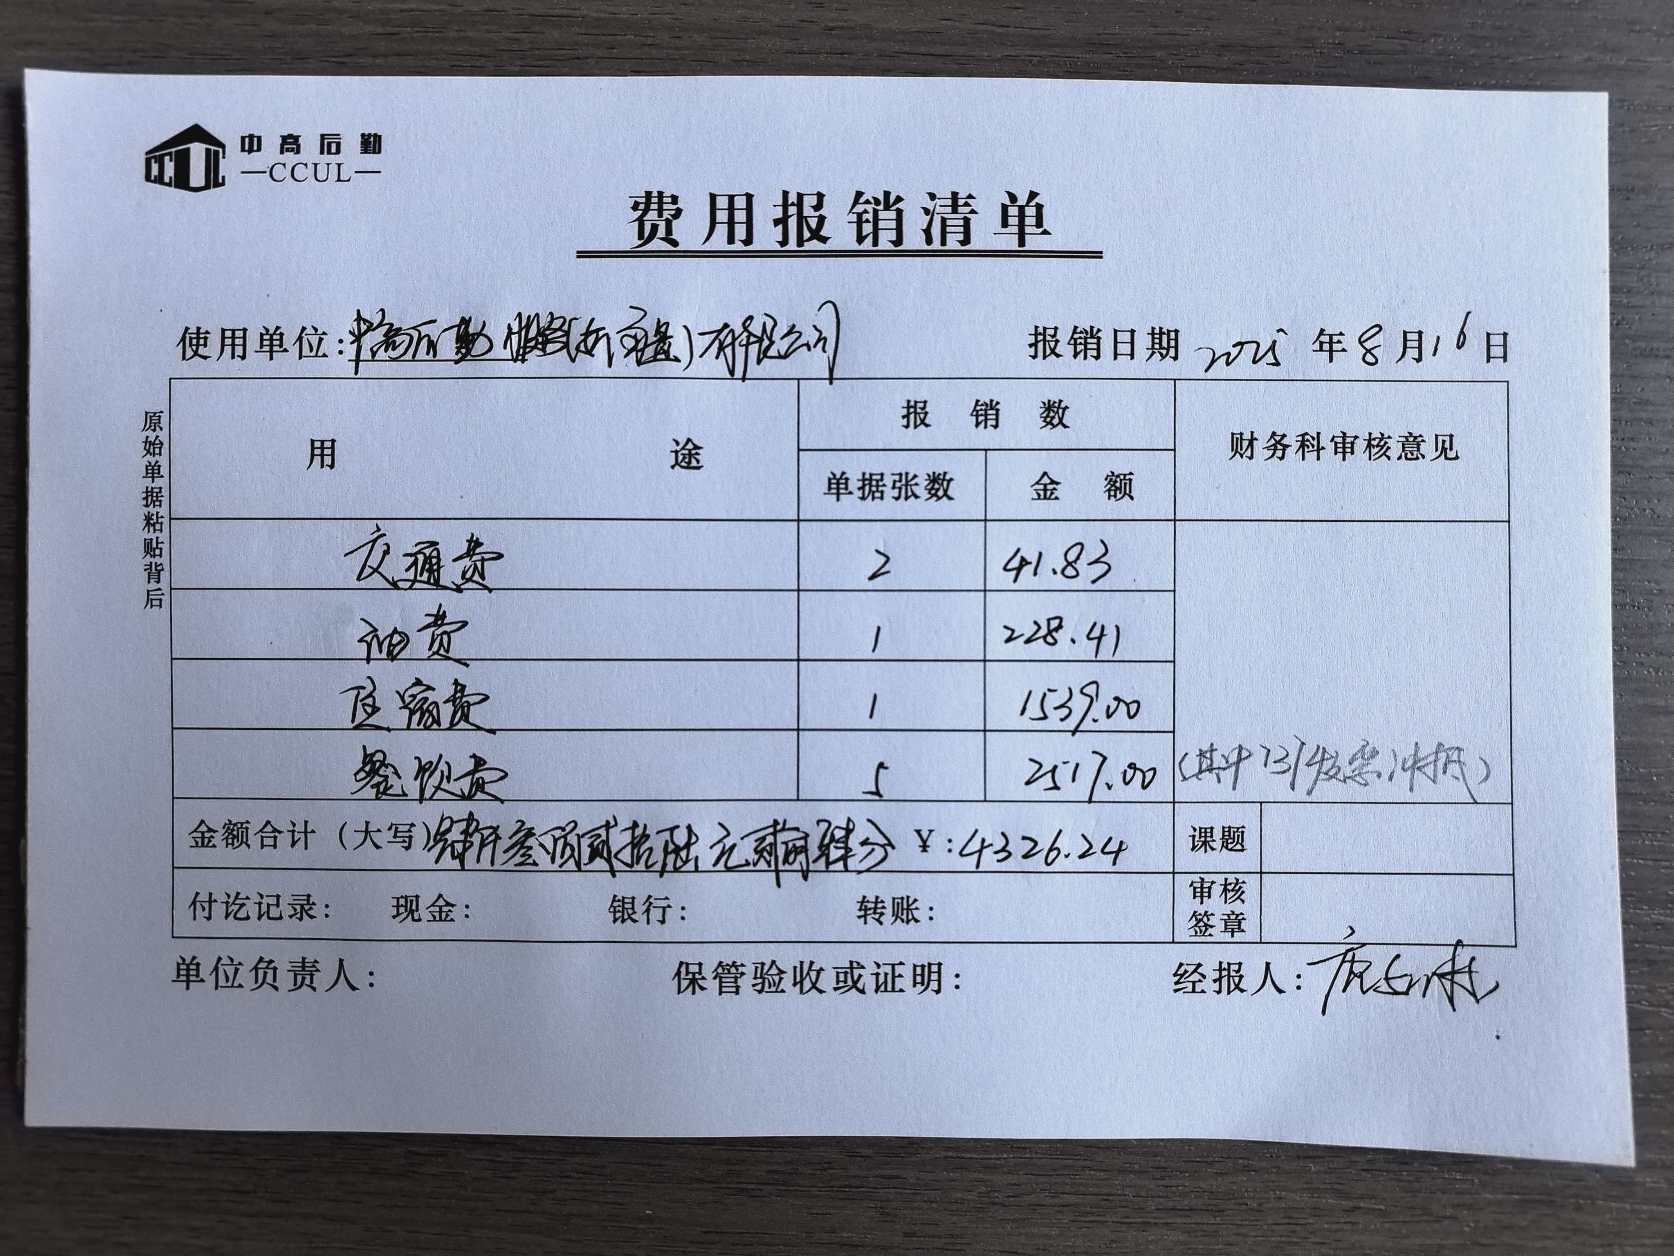 中高后勤
CCUL
—CCUL—
费用报销清单
使用单位:中高后勤 有限公司
报销日期 2025 年 8 月 16 日
原始单据粘贴背后
用 途
报 销 数
单据张数 金 额
财务科审核意见
交通费 2 41.83
油费 1 228.41
住宿费 1 1539.00
餐饮费 5 2517.00 (其中 发票冲抵)
金额合计(大写)肆仟叁佰贰拾陆元贰角肆分 ¥:4326.24 课题
付讫记录: 现金: 银行: 转账: 审核签章
单位负责人: 保管验收或证明: 经报人: